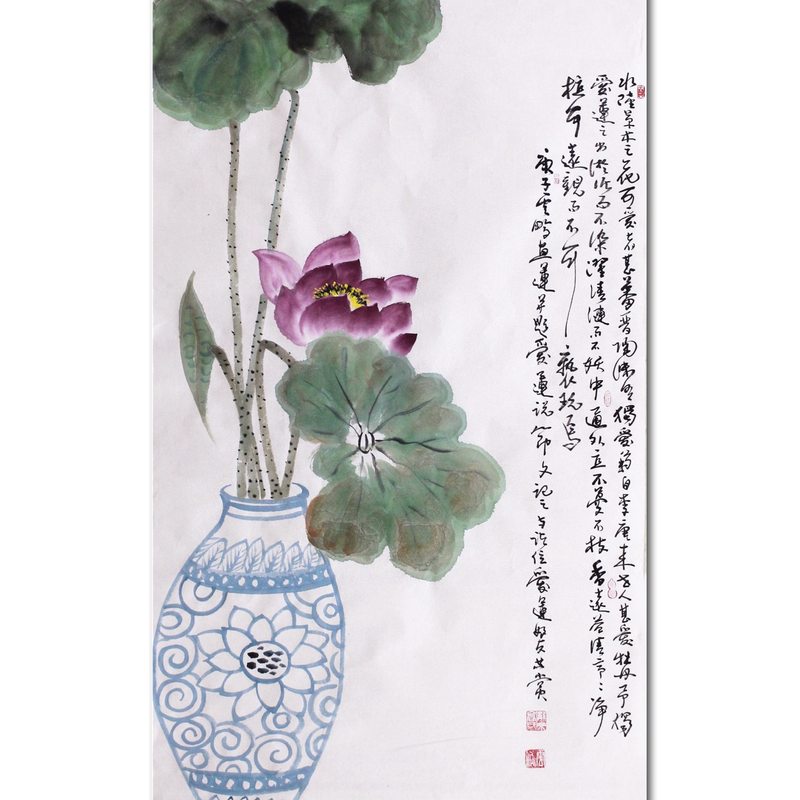 水陸草木之花可愛者甚蕃晋陶渊明獨愛菊自李唐来世人甚愛牡丹予獨
愛蓮之出淤泥而不染濯清漣而不妖中通外直不蔓不枝香遠益清亭〻净
植可遠觀而不可褻玩焉
庚子畫蓮并題愛蓮説節文記之与諸位愛蓮好友共賞